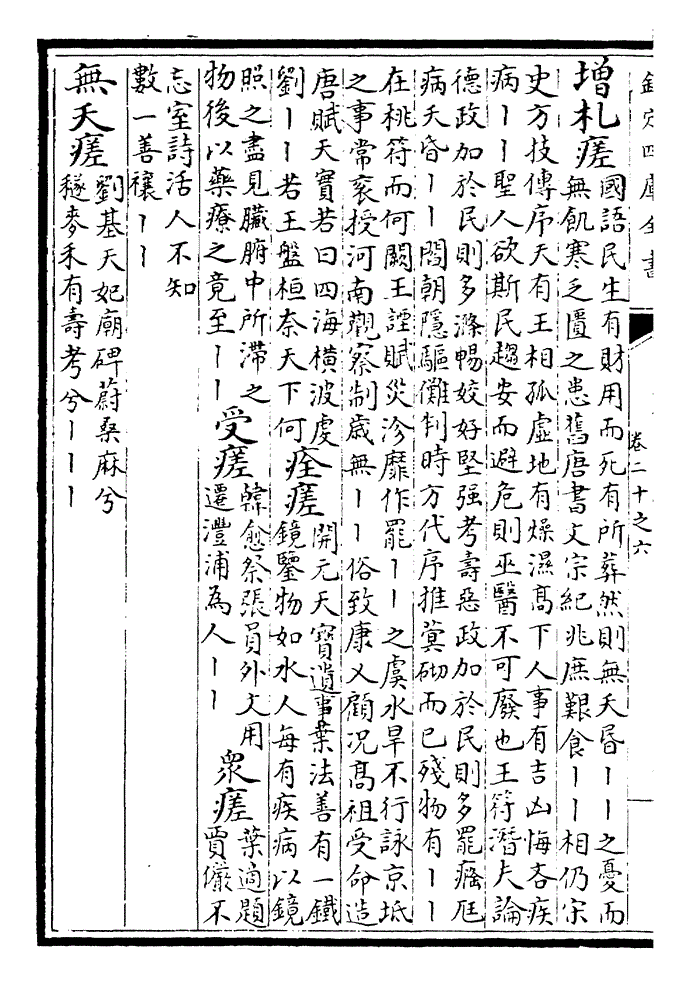 欽定四庫全書
卷二十之六
增札瘥
國語民生有財用而死有所葬然則無夭昏丨丨之憂而
無飢寒乏匱之患舊唐書文宗紀兆庶艱食丨丨相仍宋
史方技傳序天有王相孤虛地有燥濕高下人事有吉凶悔吝疾
病丨丨聖人欲斯民趨安而避危則巫醫不可廢也王符潛夫論
德政加於民則多滌暢姣好堅强考壽惡政加於民則多罷癃尫
病夭昏丨丨閻朝隱驅儺判時方代序推蓂砌而已殘物有丨丨
在桃符而何闕王諲賦災沴靡作罷丨丨之虞水旱不行詠京坻
之事常袞授河南觀察制歲無丨丨俗致康乂顧况高祖受命造
唐賦天寶若曰四海橫波虔
劉丨丨若王盤桓奈天下何
痊瘥
開元天寶遺事葉法善有一鐵
鏡鑒物如水人每有疾病以鏡
照之盡見臟腑中所滯之
物後以藥療之竟至丨丨
受瘥
韓愈祭張員外文用
遷澧浦為人丨丨
衆瘥
葉適題
賈儼不
忘室詩活人不知
數一善禳丨丨
無夭瘥
劉基天妃廟碑蔚桑麻兮
穟麥禾有壽考兮丨丨丨